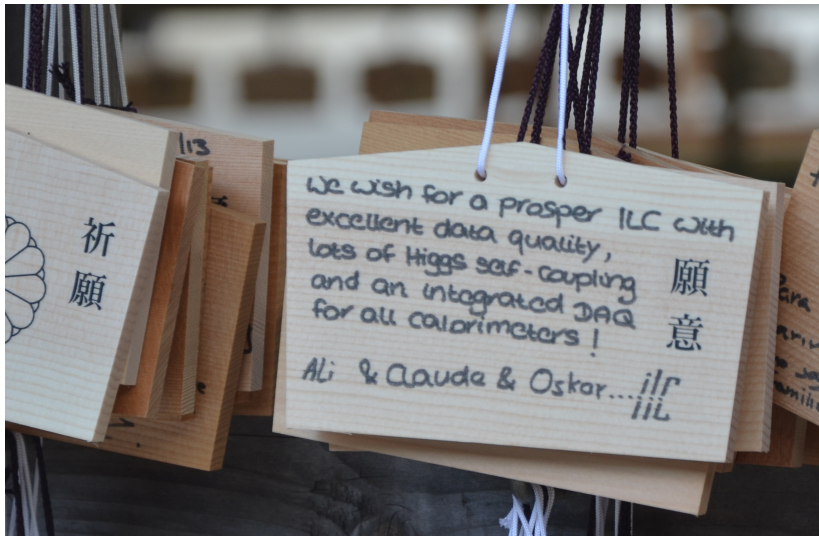 /13
祈願
We wish for a prosper ILC with
excellent data quality,
lots of Higgs self-coupling
and an integrated DAQ
for all calorimeters!
願意
Ali & Claude & Oskar...